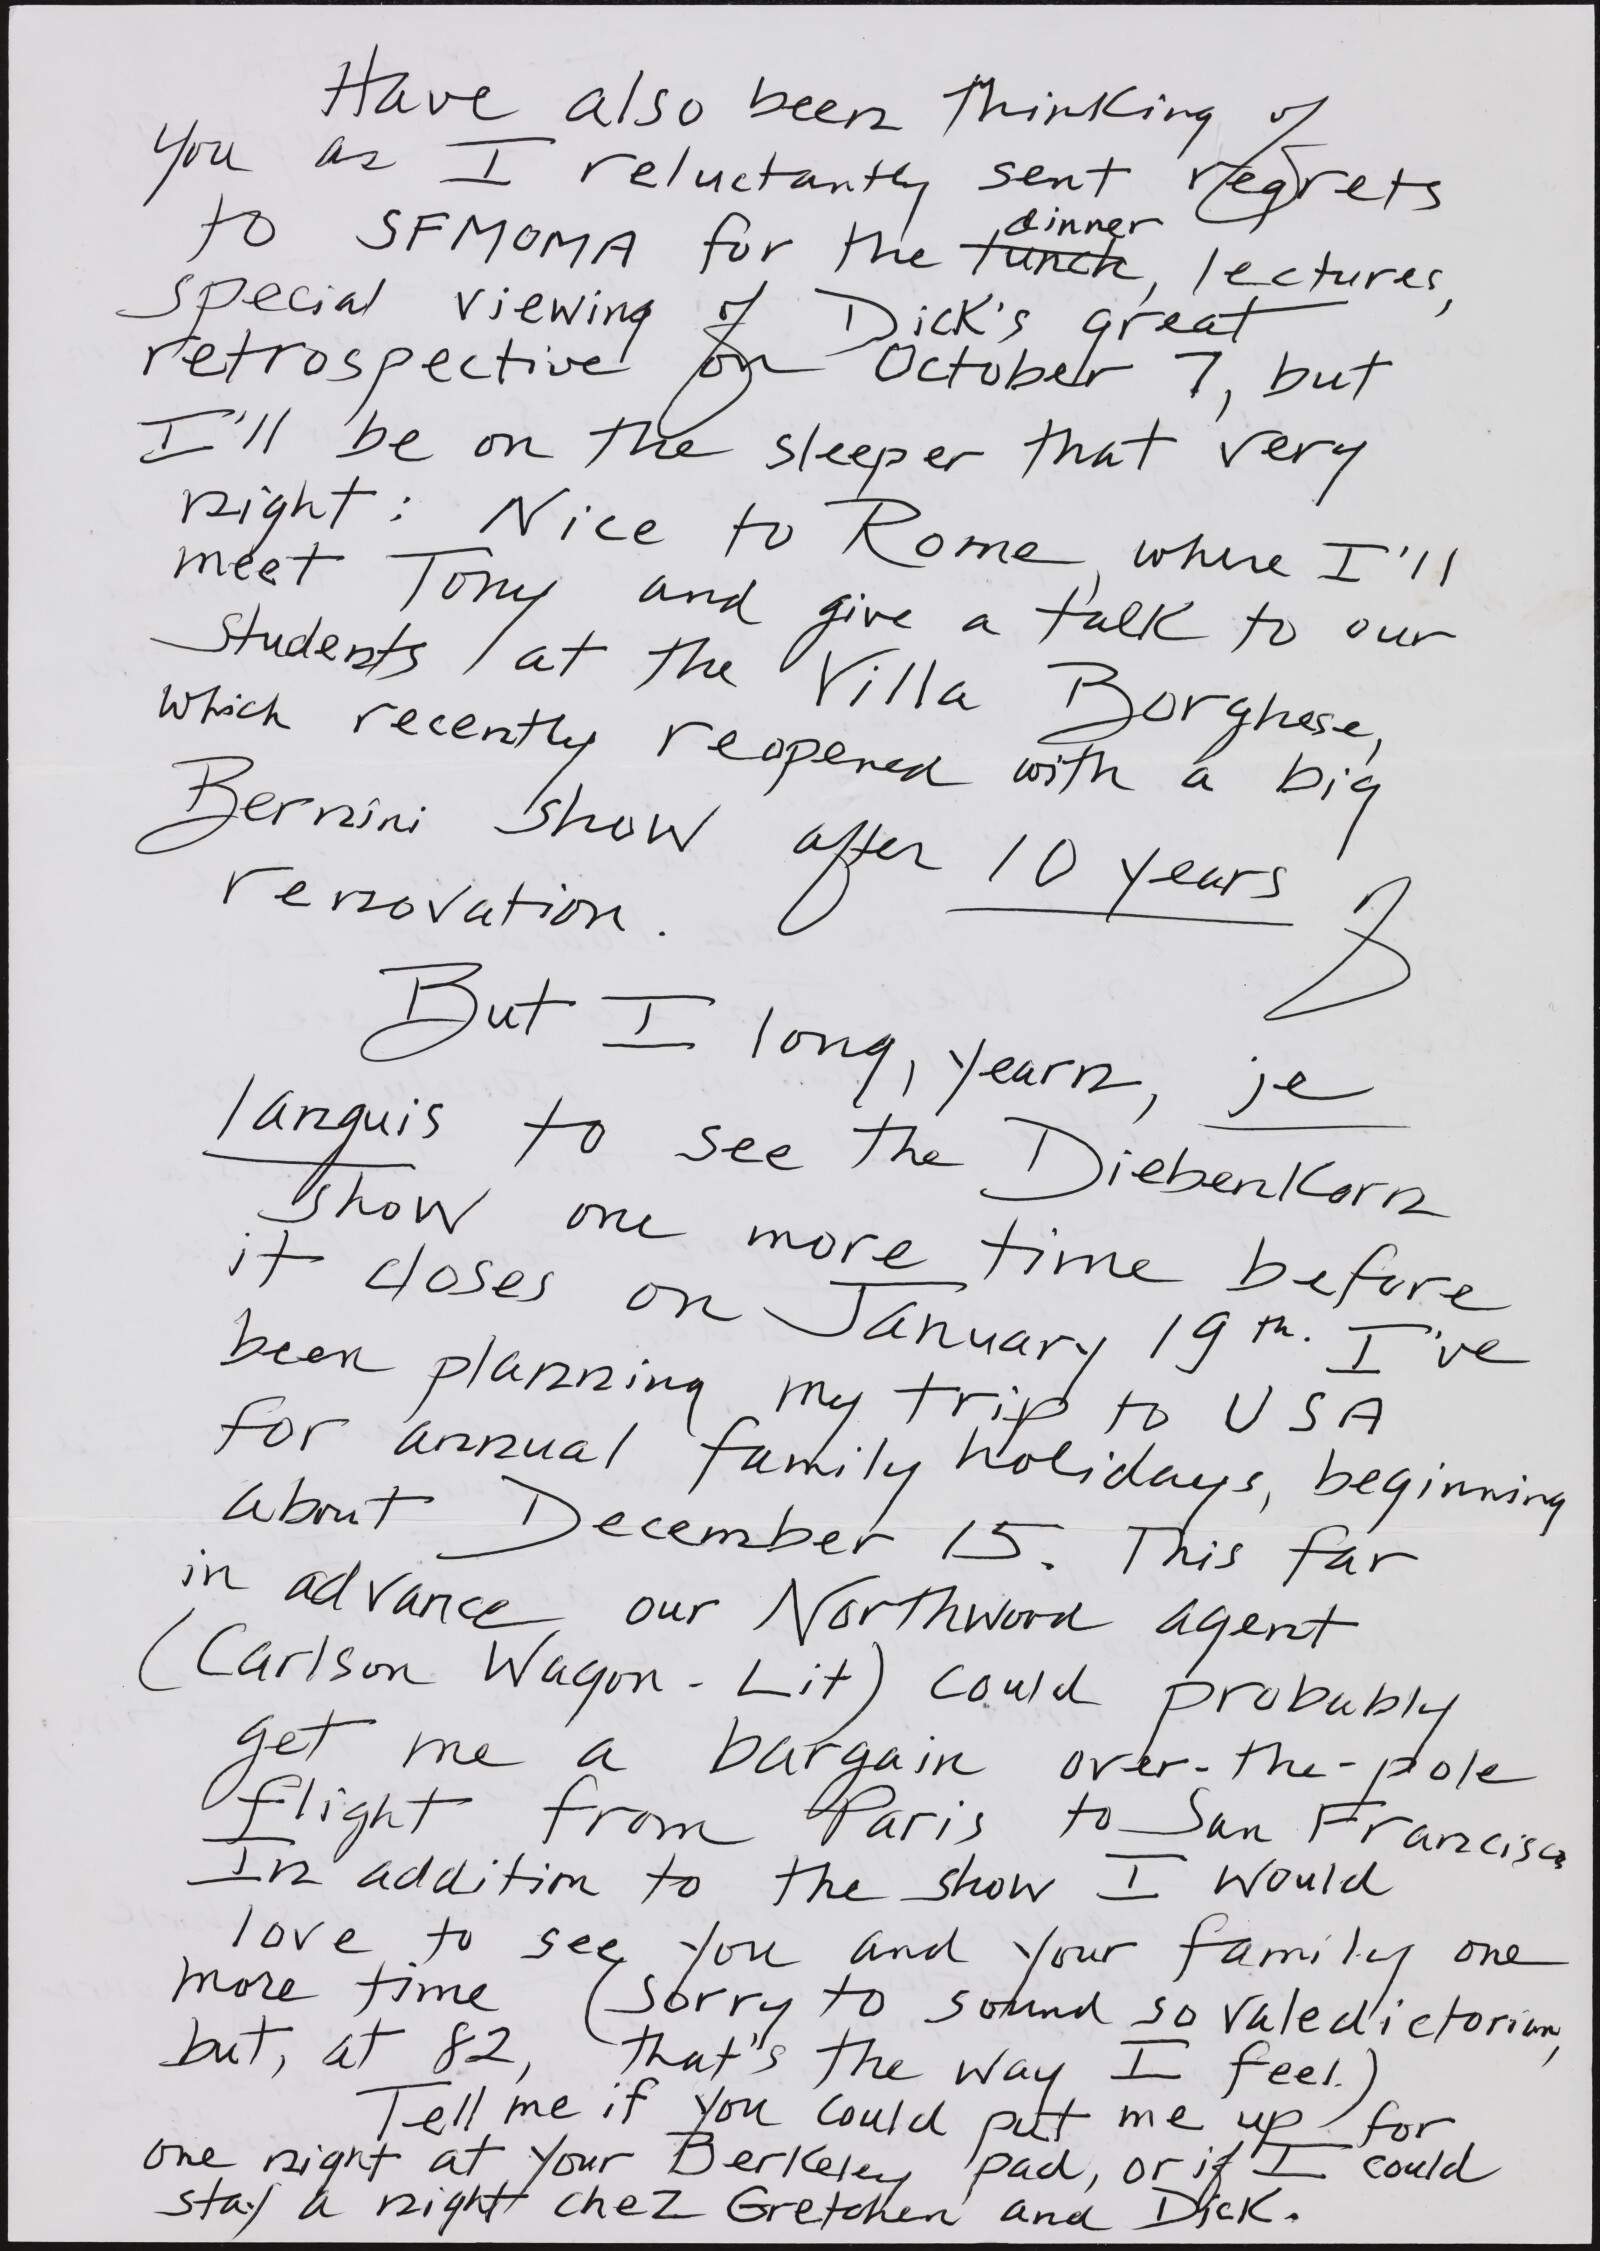 Have also been thinking of
you as I reluctantly sent regrets
to SFMOMA for the lunch dinner, lectures,
special viewing of Dick's great
retrospective on October 7, but
I'll be on the sleeper that very
night: Nice to Rome, where I'll
meet Tony and give a talk to our
students at the Villa Borghese,
which recently reopened with a big
Bernini show after 10 years of
renovation.
But I long, yearn, je
languis to see the Diebenkorn
show one more time before
it closes on January 19th. I've
been planning my trip to USA
for annual family holidays, beginning
about December 15. This far
in advance our Northwood agent
(Carlson Wagon-Lit) could probably
get me a bargain over-the-pole
flight from Paris to San Francisco
In addition to the show I would
love to see you and your family one
more time (sorry to sound so valedictorian,
but, at 82, that's the way I feel.)
Tell me if you could put me up for
one night at your Berkeley pad, or if I could
stay a night chez Gretchen and Dick.